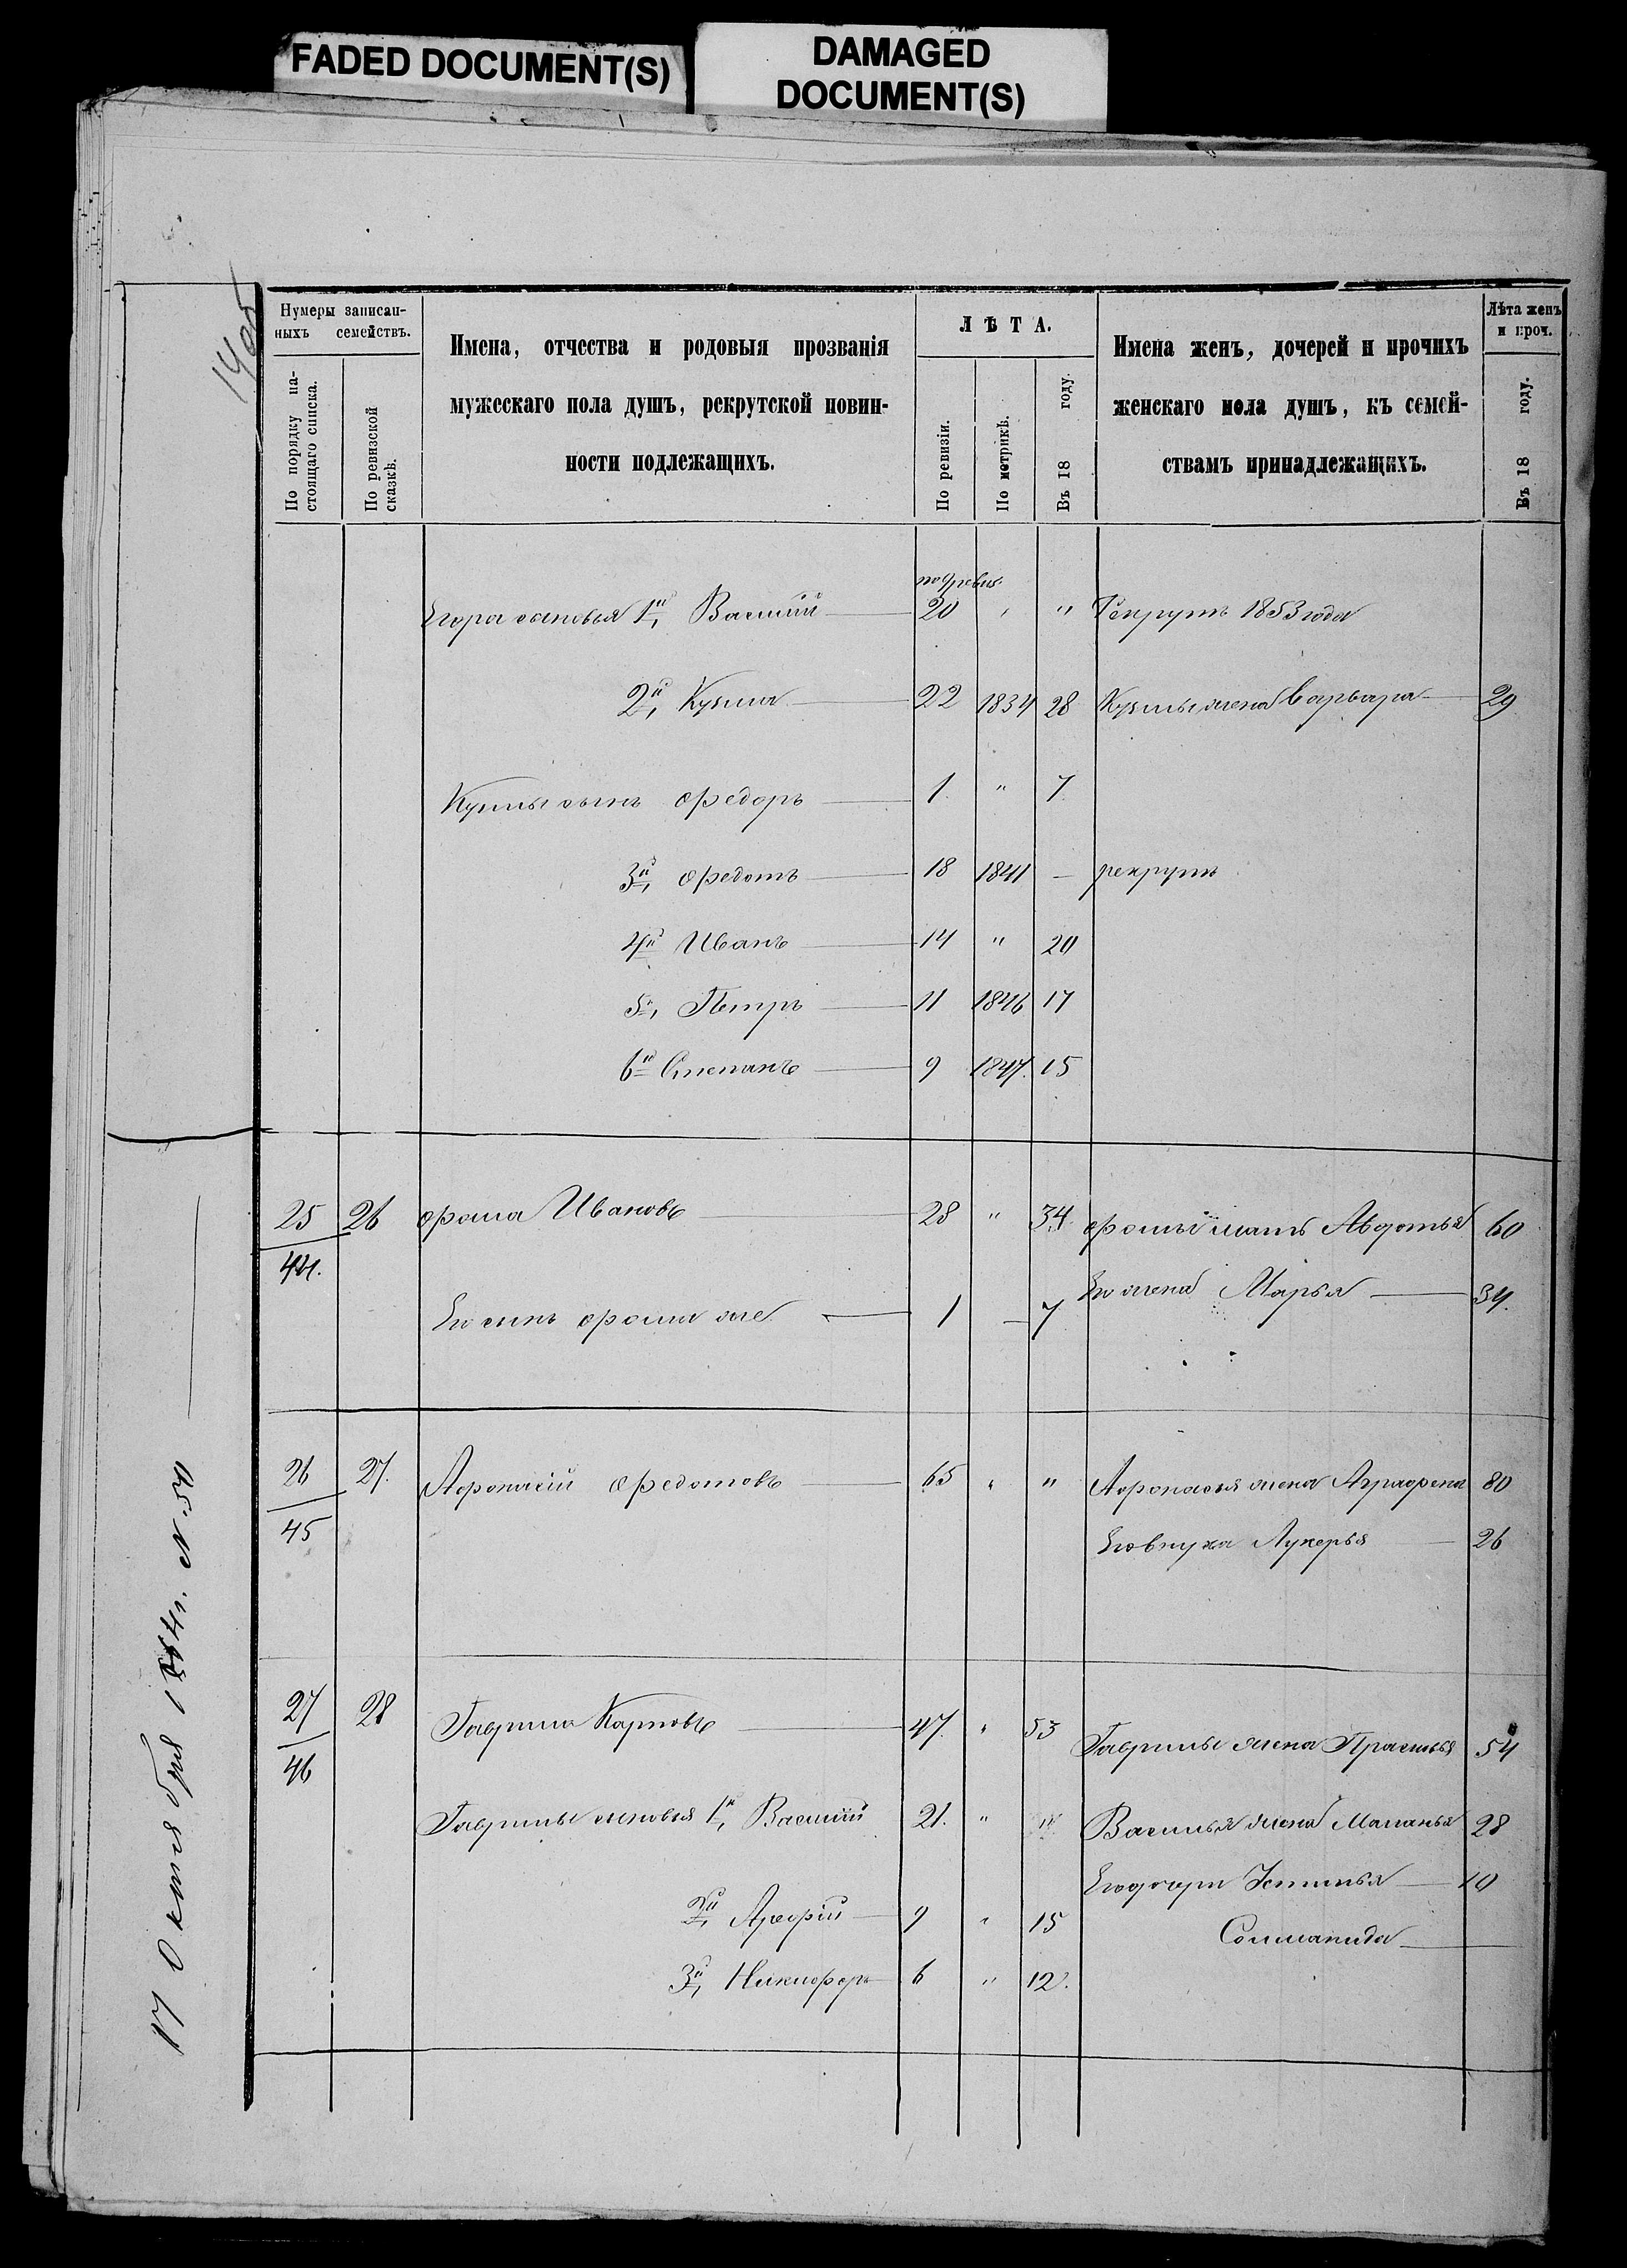 FADED DOCUMENT(S)
DAMAGED
DOCUMENT(S)
1405
17 Октября 1864г. № 50
Нумеры записан-
ныхъ семействъ.
По порядку на-
стоящаго списка.
По ревизской
сказкѣ.
Имена, отчества и родовыя прозванія
мужескаго пола душъ, рекрутской повин-
ности подлежащихъ.
ЛѢТА.
По ревизіи.
По метрикѣ.
Въ 18 году.
Имена женъ, дочерей и прочихъ
женскаго пола душъ, къ семей-
ствамъ принадлежащихъ.
Лѣта женъ
и проч.
Въ 18 году.
Егора сыновья 1й, Василій 20 " " Рекрутъ 1853 года
2й, Кузма 22 1834 28 Кузмы жена Варвара 29
Кузмы сынъ Федоръ 1 " 7
3й, Федотъ 18 1841 — рекрутъ
4й Иванъ 14 " 20
5й, Петръ 11 1846 17
6й Степанъ 9 1847. 15
25 26 Фома Ивановъ 28 " 34 Фомы мать Авдотья 60
44.
Его жена Марья 34.
Его сынъ Фома же 1 — 7
26 27. Афонасій Федотовъ 65 " " Афонасья жена Аграфена 80
45
Его внука Лукерья 26
27 28 Гаврила Карповъ 47. " 53 Гаврилы жена Прасковья 54
46
Гаврилы сыновья 1й, Василій 21. " " Василья жена Маланья 28
Его дочери Устинья 10
2й, Арефій 9 " 15
Соломанида
3й, Никифоръ 6 " 12.